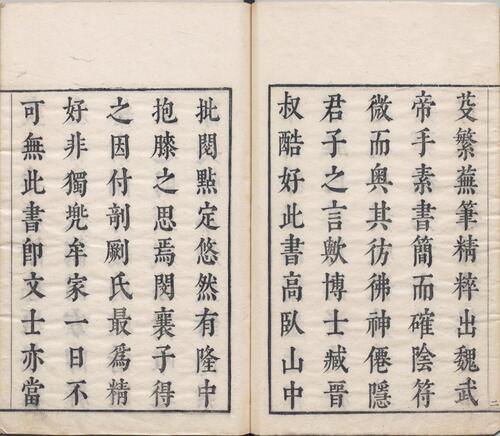 芟繁蕪筆精粹出魏武
帝手素書簡而確陰符
微而奥其彷彿神僊隱
君子之言歟博士臧晋
叔酷好此書高臥山中
批閲點定悠然有隆中
抱膝之思焉閔襄子得
之因付剞劂氏最爲精
好非獨兜牟家一日不
可無此書即文士亦當
二